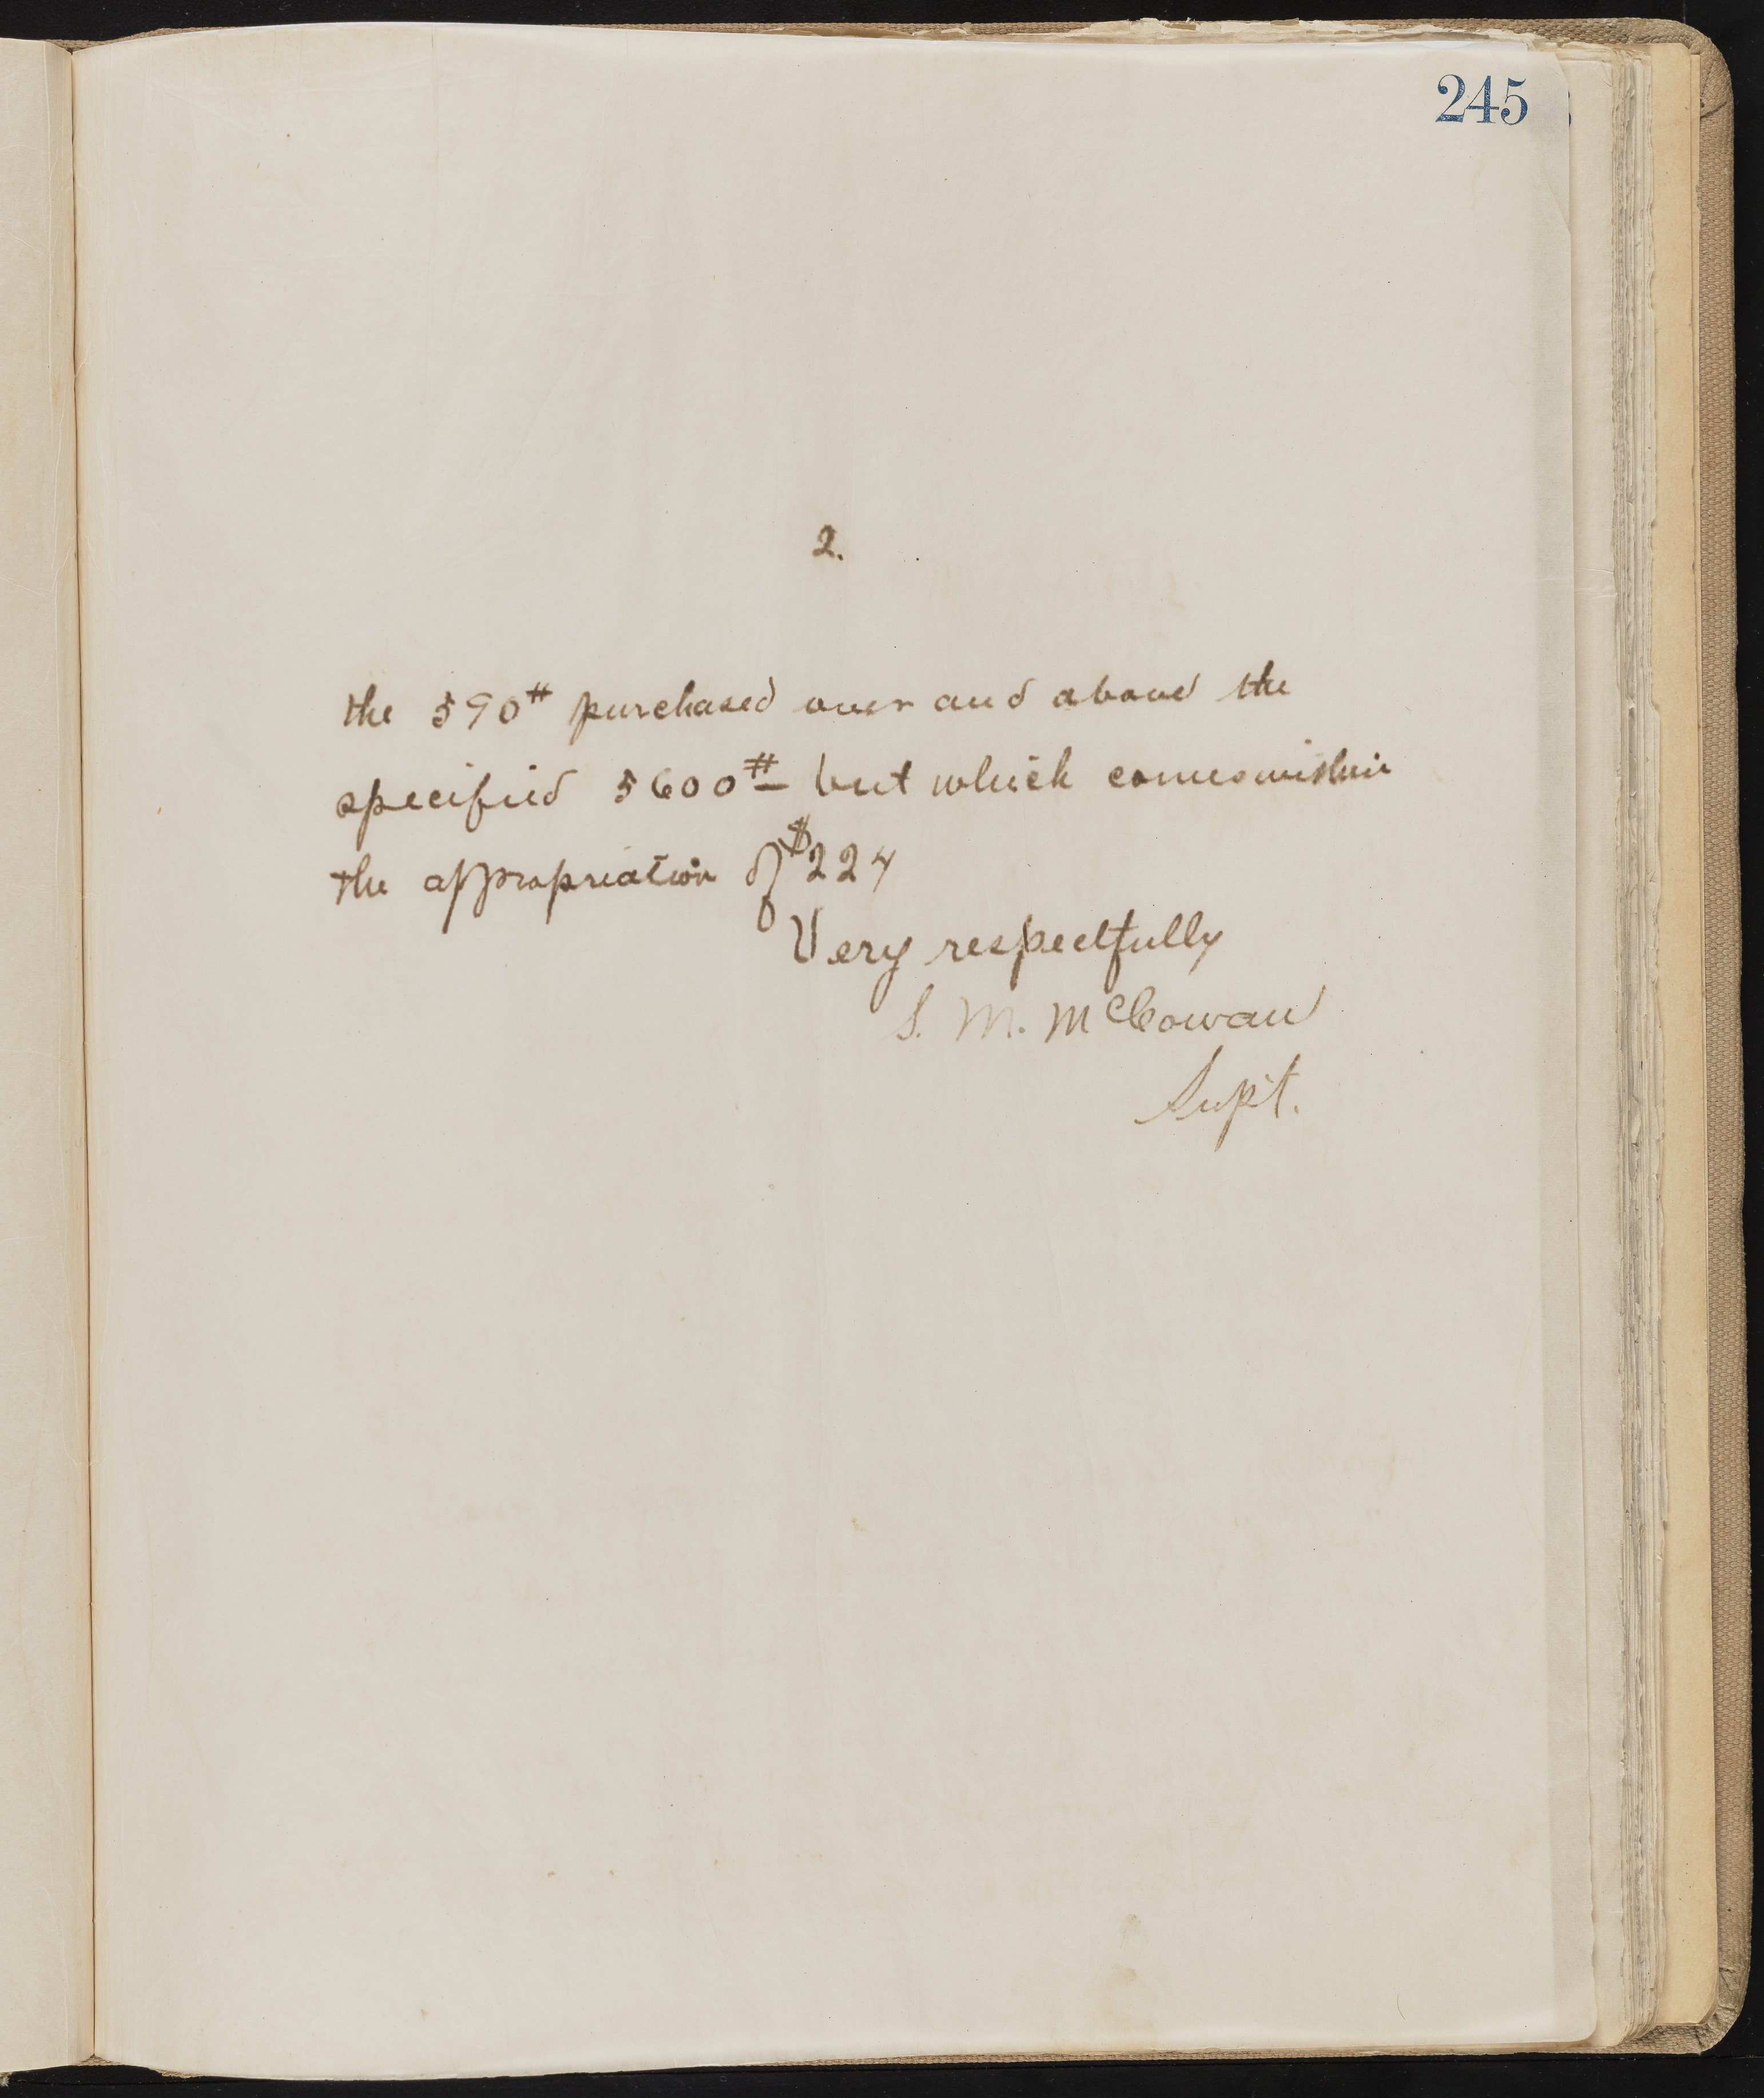 245
2.
the 590# purchased over and above the
specified 5600# but which comes within
the appropriation of $224
Very respectfully
S. M. McCowan
Supt.